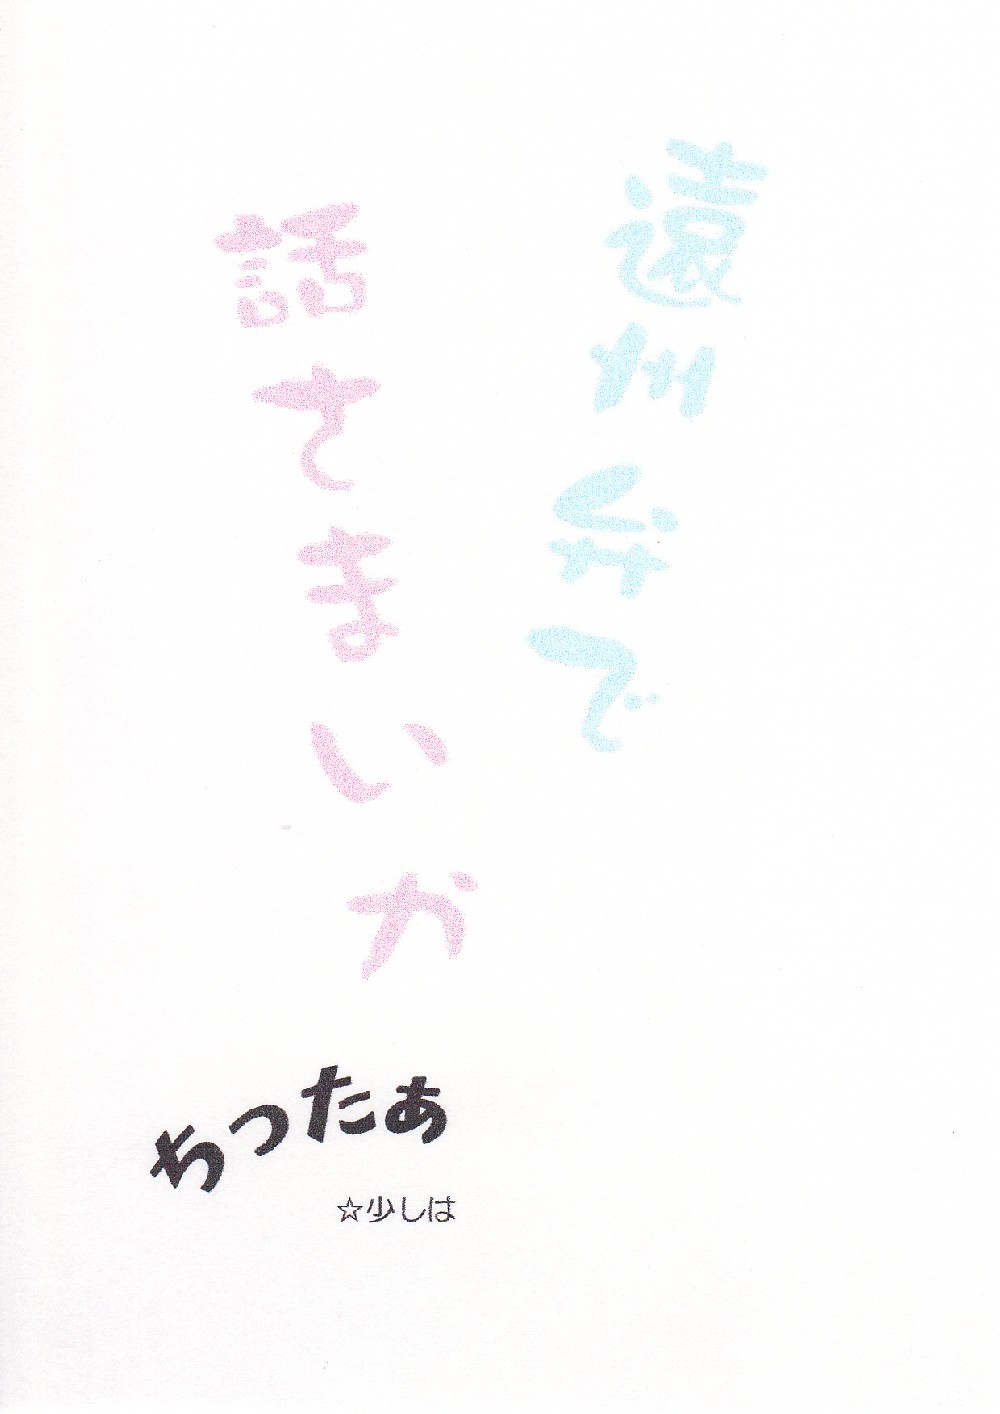 遠州弁で
話さまいか
ちったぁ
☆少しは